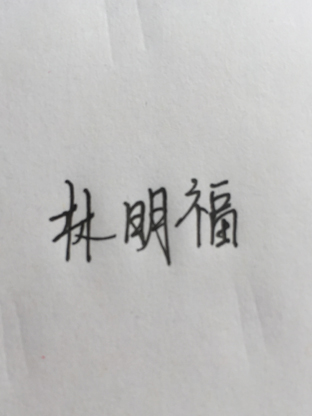 林明福